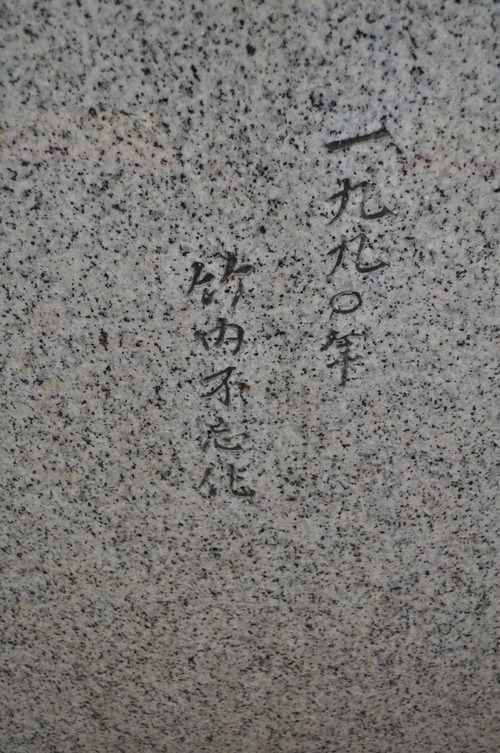 一九九〇年
竹内不忘作